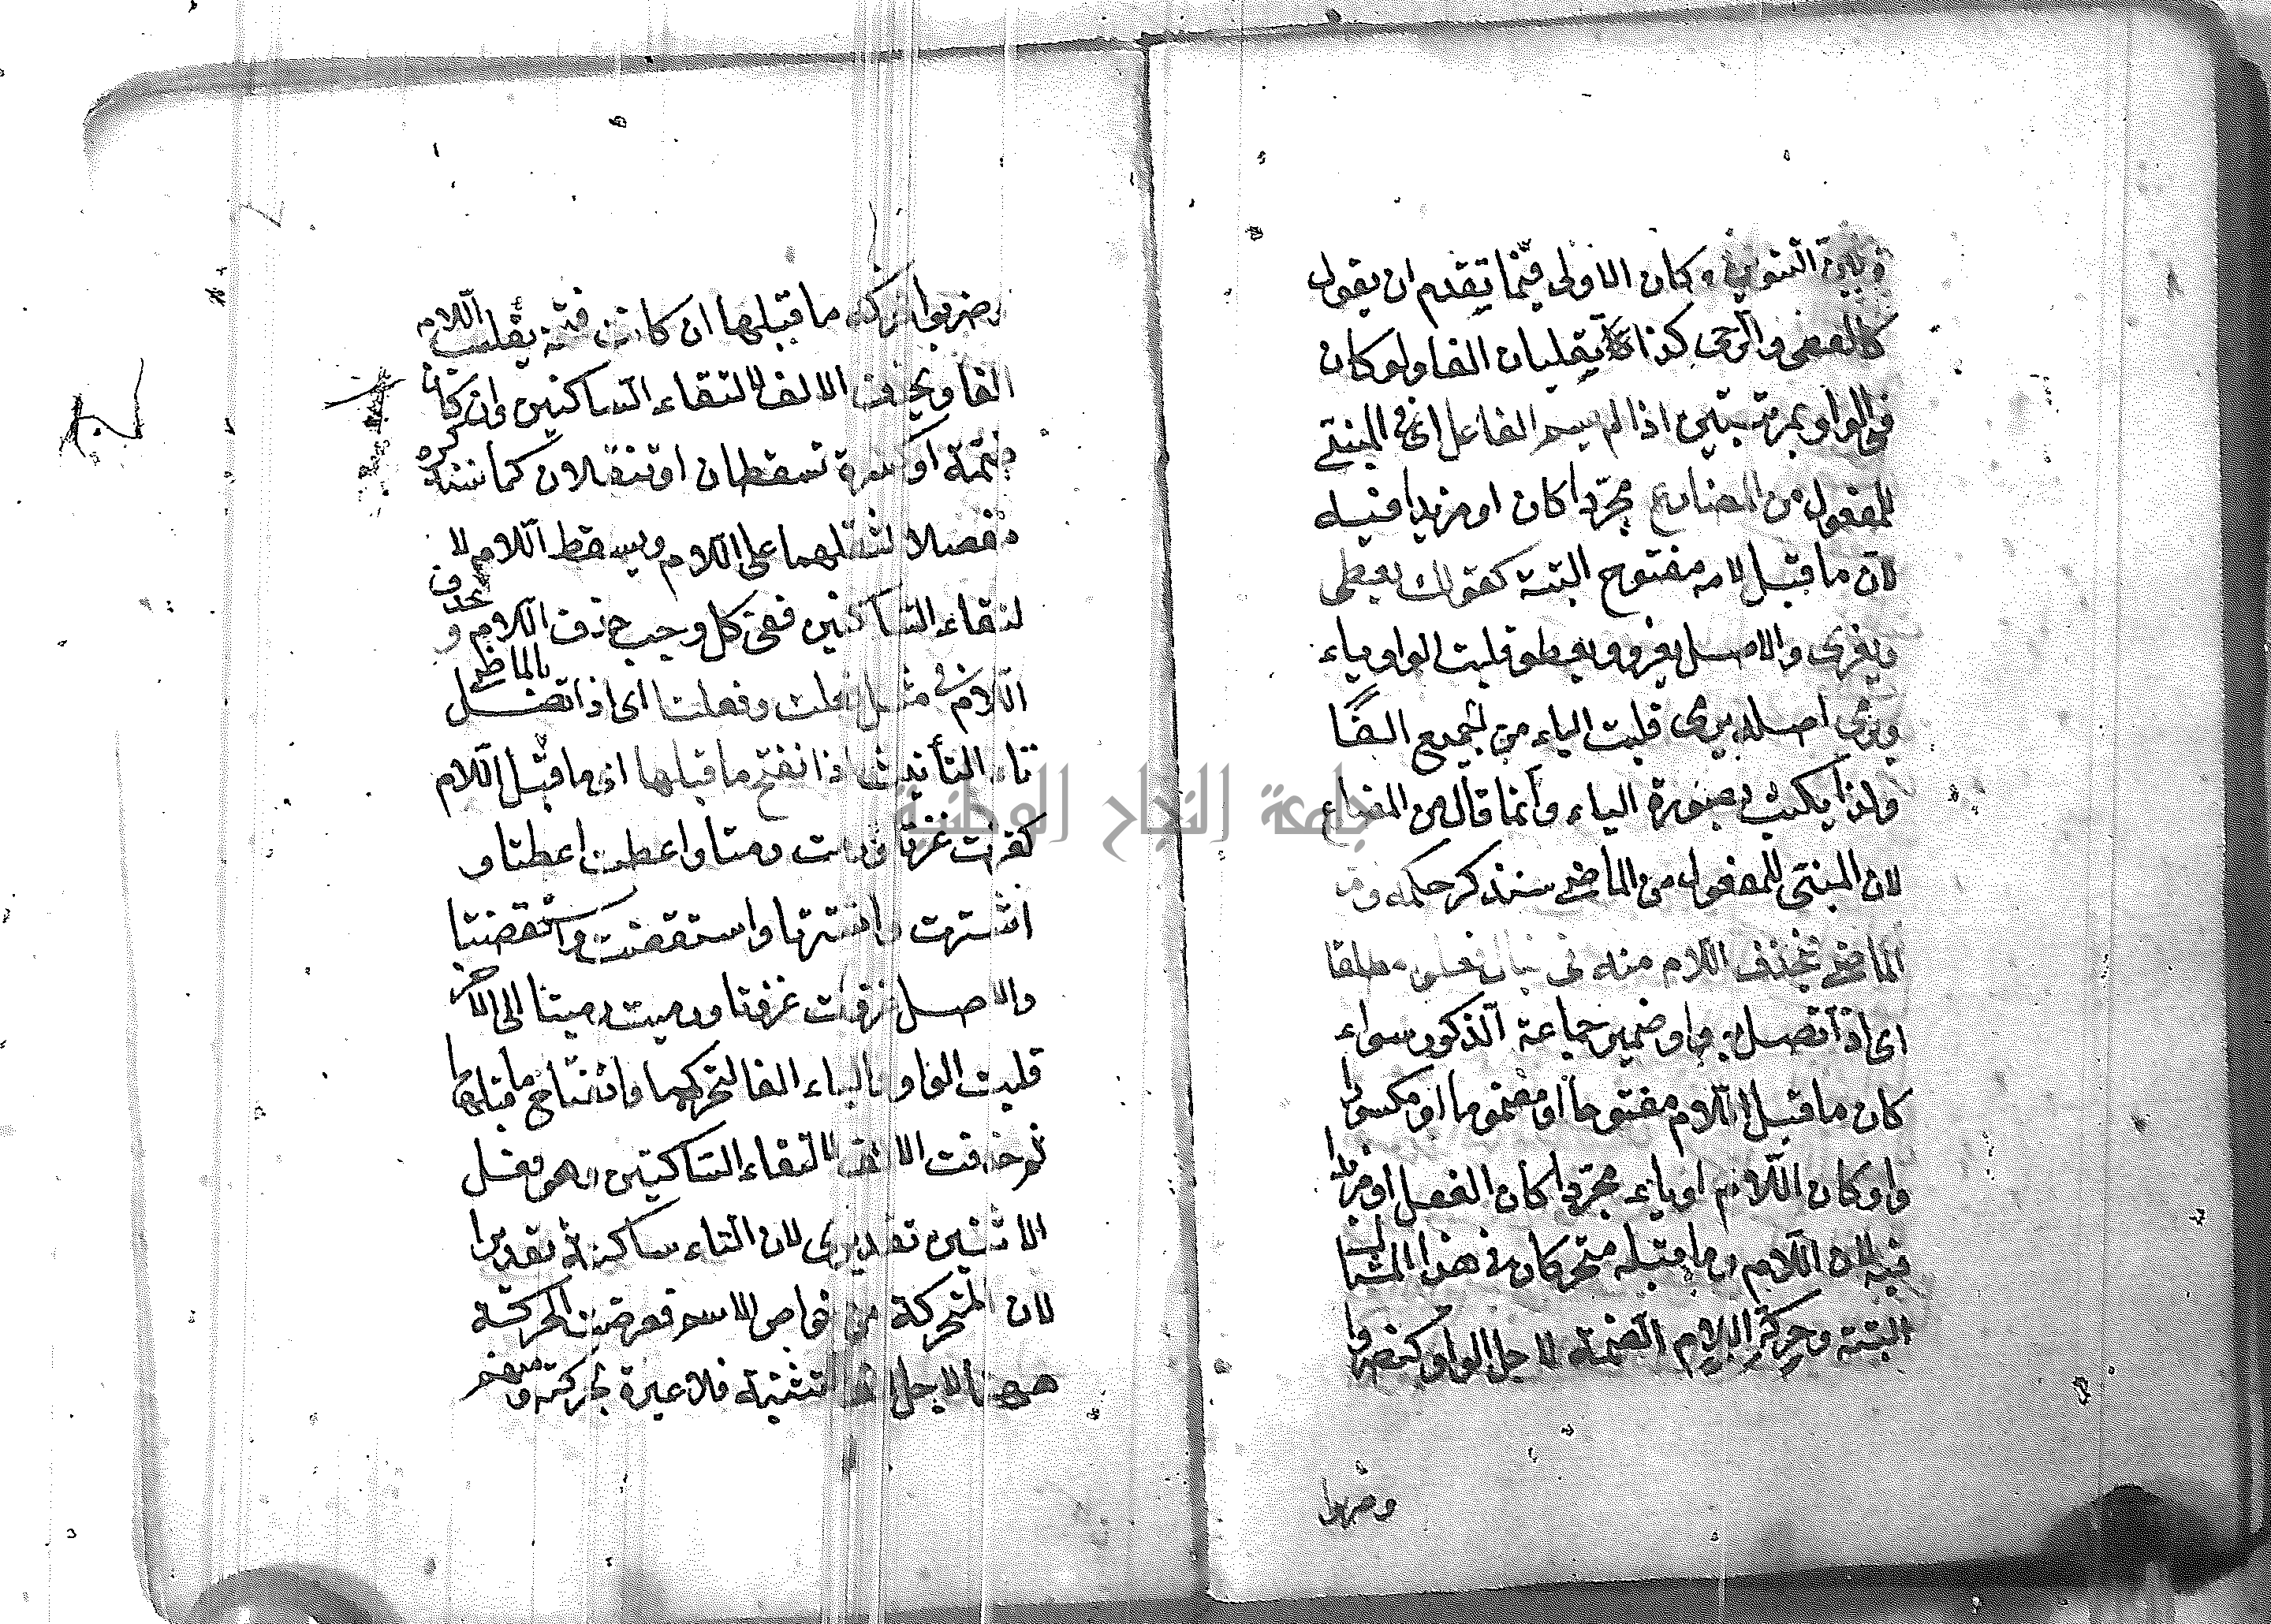 التنوين وكان الاولى فيما تقدم ان يقول
كالعصى والرحى كذا يقلبان الفا ولو كان
فى الواو بمرتبتين اذا لم يسم الفاعل اى فى المبنى
للمفعول من المضارع مجردا كان او مزيدا فيه
لان ما قبل لامه مفتوح البتة كقولك يعطى
ويغزى والاصل يغزو ويعطو قلبت الواو ياء
ويرمى اصله يرمى قلبت الياء من الجميع الفا
ولذا يكتب بصورة الياء وانما قال من المضارع
لان المبنى للمفعول من الماضى سنذكر حكمه
الماضى فيحذف اللام منه فى مثال فعلوا مطلقا
اى اذا اتصل به واو ضمير جماعة الذكور سواء
كان ما قبل اللام مفتوحا او مضموما او مكسورا
واو كان اللام او ياء مجردا كان الفعل او مزيدا
فيه لان اللام وما قبله متحركان فى هذا المثال
البتة وحركة اللام الضمة لاجل الواو كنصروا
وضربوا
وضربوا فحركة ما قبلها ان كانت فتحة يقلب اللام
الفا ويحذف الالف لالتقاء الساكنين وان كان
ضمة او كسرة تسقطان او تنقلان كما سنذكره
مفصلا لثقلهما على اللام ويسقط اللام لا
لتقاء الساكنين ففى كل وجب حذف اللام و يحذف
اللام فى مثل فعلت وفعلتا اى اذا اتصل بالماضى
تاء التأنيث اذا انفتح ما قبلها اى ما قبل اللام
كغزت غزتا ورمت رمتا واعطت اعطتا و
اشترت واشترتا واستقضت واستقضتا
والاصل غزوت غزوتا ورميت رميتا الى الاخر
قلبت الواو والياء الفا لتحركهما وانفتاح ما قبلهما
ثم حذفت الالف لالتقاء الساكنين وهو فعل
الاثنين تقديرى لان التاء ساكنة تقديرا
لان المتحركة من خواص الاسم فعرضت الحركة
ههنا لاجل الف التثنية فلا عبرة بحركته ومنهم
جامعة النجاح الوطنية